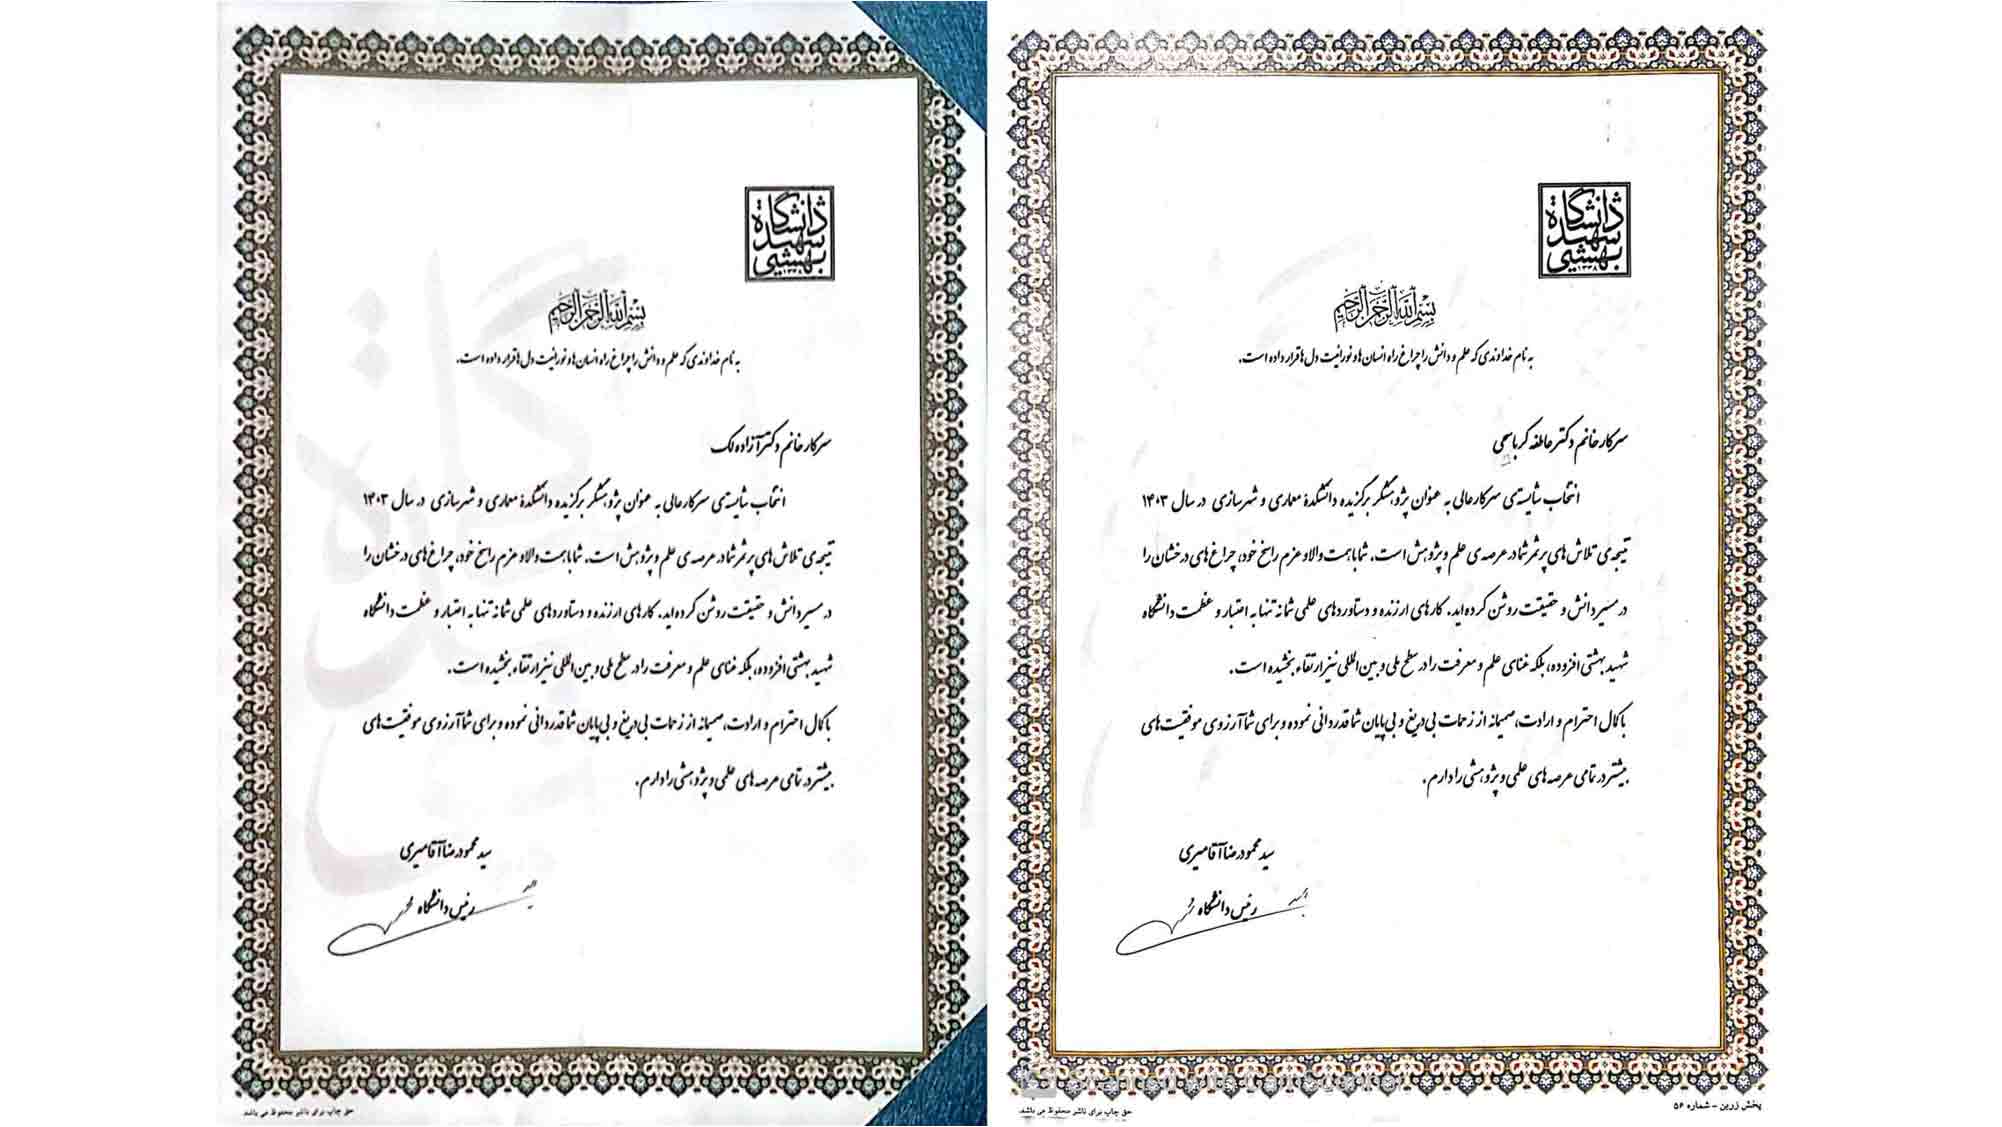 دانشگاه
شهید
بهشتی
۱۳۳۸
بسم الله الرحمن الرحیم
به نام خداوندی که علم و دانش را چراغ راه انسان‌ها و نورانیت دل‌ها قرار داده است.
سرکار خانم دکتر عاطفه کرباسی
انتخاب شایسته‌ی سرکارعالی به عنوان پژوهشگر برگزیده دانشکدۀ معماری و شهرسازی در سال ۱۴۰۳
نتیجه‌ی تلاش‌های پرثمر شما در عرصه‌ی علم و پژوهش است. شما با همت والا و عزم راسخ خود، چراغ‌های درخشان را
در مسیر دانش و حقیقت روشن کرده‌اید. کارهای ارزنده و دستاوردهای علمی شما نه تنها به اعتبار و عظمت دانشگاه
شهید بهشتی افزوده، بلکه غنای علم و معرفت را در سطح ملی و بین‌المللی نیز ارتقاء بخشیده است.
با کمال احترام و ارادت، صمیمانه از زحمات بی‌دریغ و بی‌پایان شما قدردانی نموده و برای شما آرزوی موفقیت‌های
بیشتر در تمامی عرصه‌های علمی و پژوهشی را دارم.
سید محمودرضا آقامیری
رئیس دانشگاه
پخش زرین - شماره ۵۶
حق چاپ برای ناشر محفوظ می باشد.
دانشگاه
شهید
بهشتی
۱۳۳۸
بسم الله الرحمن الرحیم
به نام خداوندی که علم و دانش را چراغ راه انسان‌ها و نورانیت دل‌ها قرار داده است.
سرکار خانم دکتر آزاده لک
انتخاب شایسته‌ی سرکارعالی به عنوان پژوهشگر برگزیده دانشکدۀ معماری و شهرسازی در سال ۱۴۰۳
نتیجه‌ی تلاش‌های پرثمر شما در عرصه‌ی علم و پژوهش است. شما با همت والا و عزم راسخ خود، چراغ‌های درخشان را
در مسیر دانش و حقیقت روشن کرده‌اید. کارهای ارزنده و دستاوردهای علمی شما نه تنها به اعتبار و عظمت دانشگاه
شهید بهشتی افزوده، بلکه غنای علم و معرفت را در سطح ملی و بین‌المللی نیز ارتقاء بخشیده است.
با کمال احترام و ارادت، صمیمانه از زحمات بی‌دریغ و بی‌پایان شما قدردانی نموده و برای شما آرزوی موفقیت‌های
بیشتر در تمامی عرصه‌های علمی و پژوهشی را دارم.
سید محمودرضا آقامیری
رئیس دانشگاه
حق چاپ برای ناشر محفوظ می باشد.